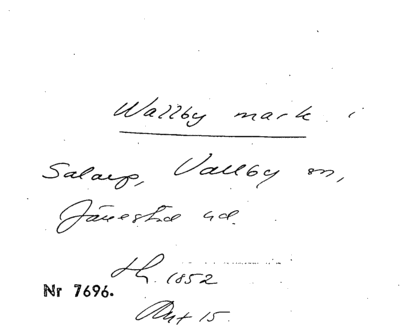 Wallby mark
Salarp, Vallby sn,
Järrestad hd.
1852
Nr 7696.
Akt 15.